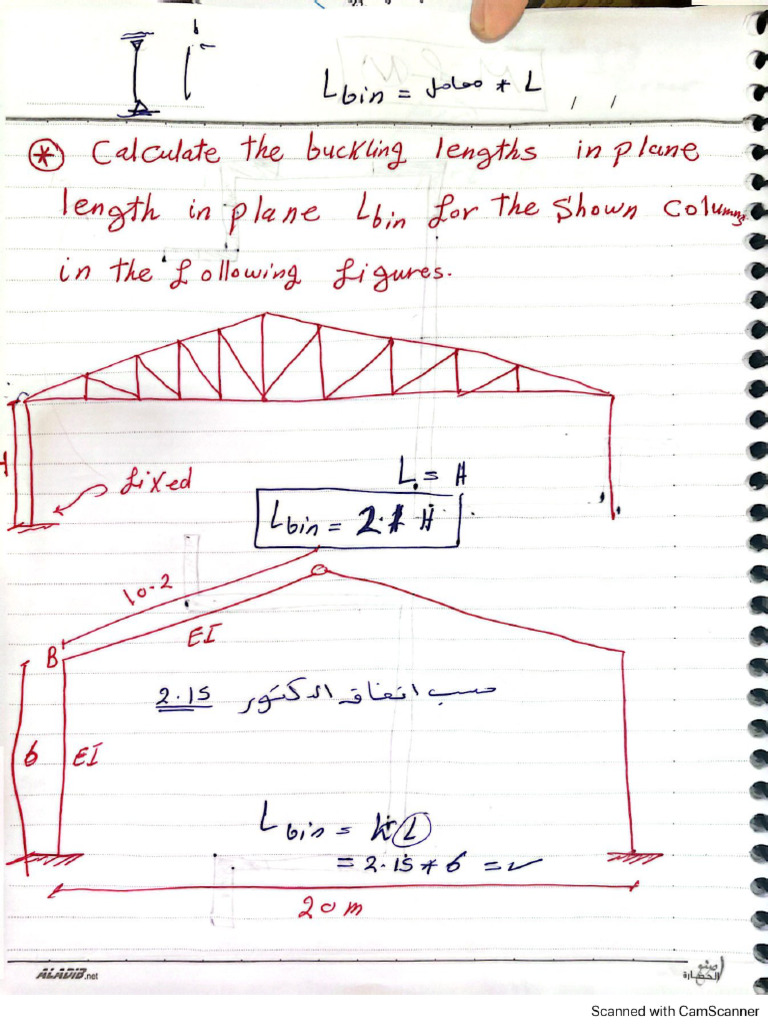 Lbin = معامل * L
* Calculate the buckling lengths in plane
length in plane Lbin for the shown columns
in the following figures.
fixed
L = H
Lbin = 2.1 H
10.2
B
EI
حسب اتفاق الدكتور 2.15
6
EI
Lbin = K L
= 2.15 * 6 = ✓
20 m
ALADIB.net
Scanned with CamScanner